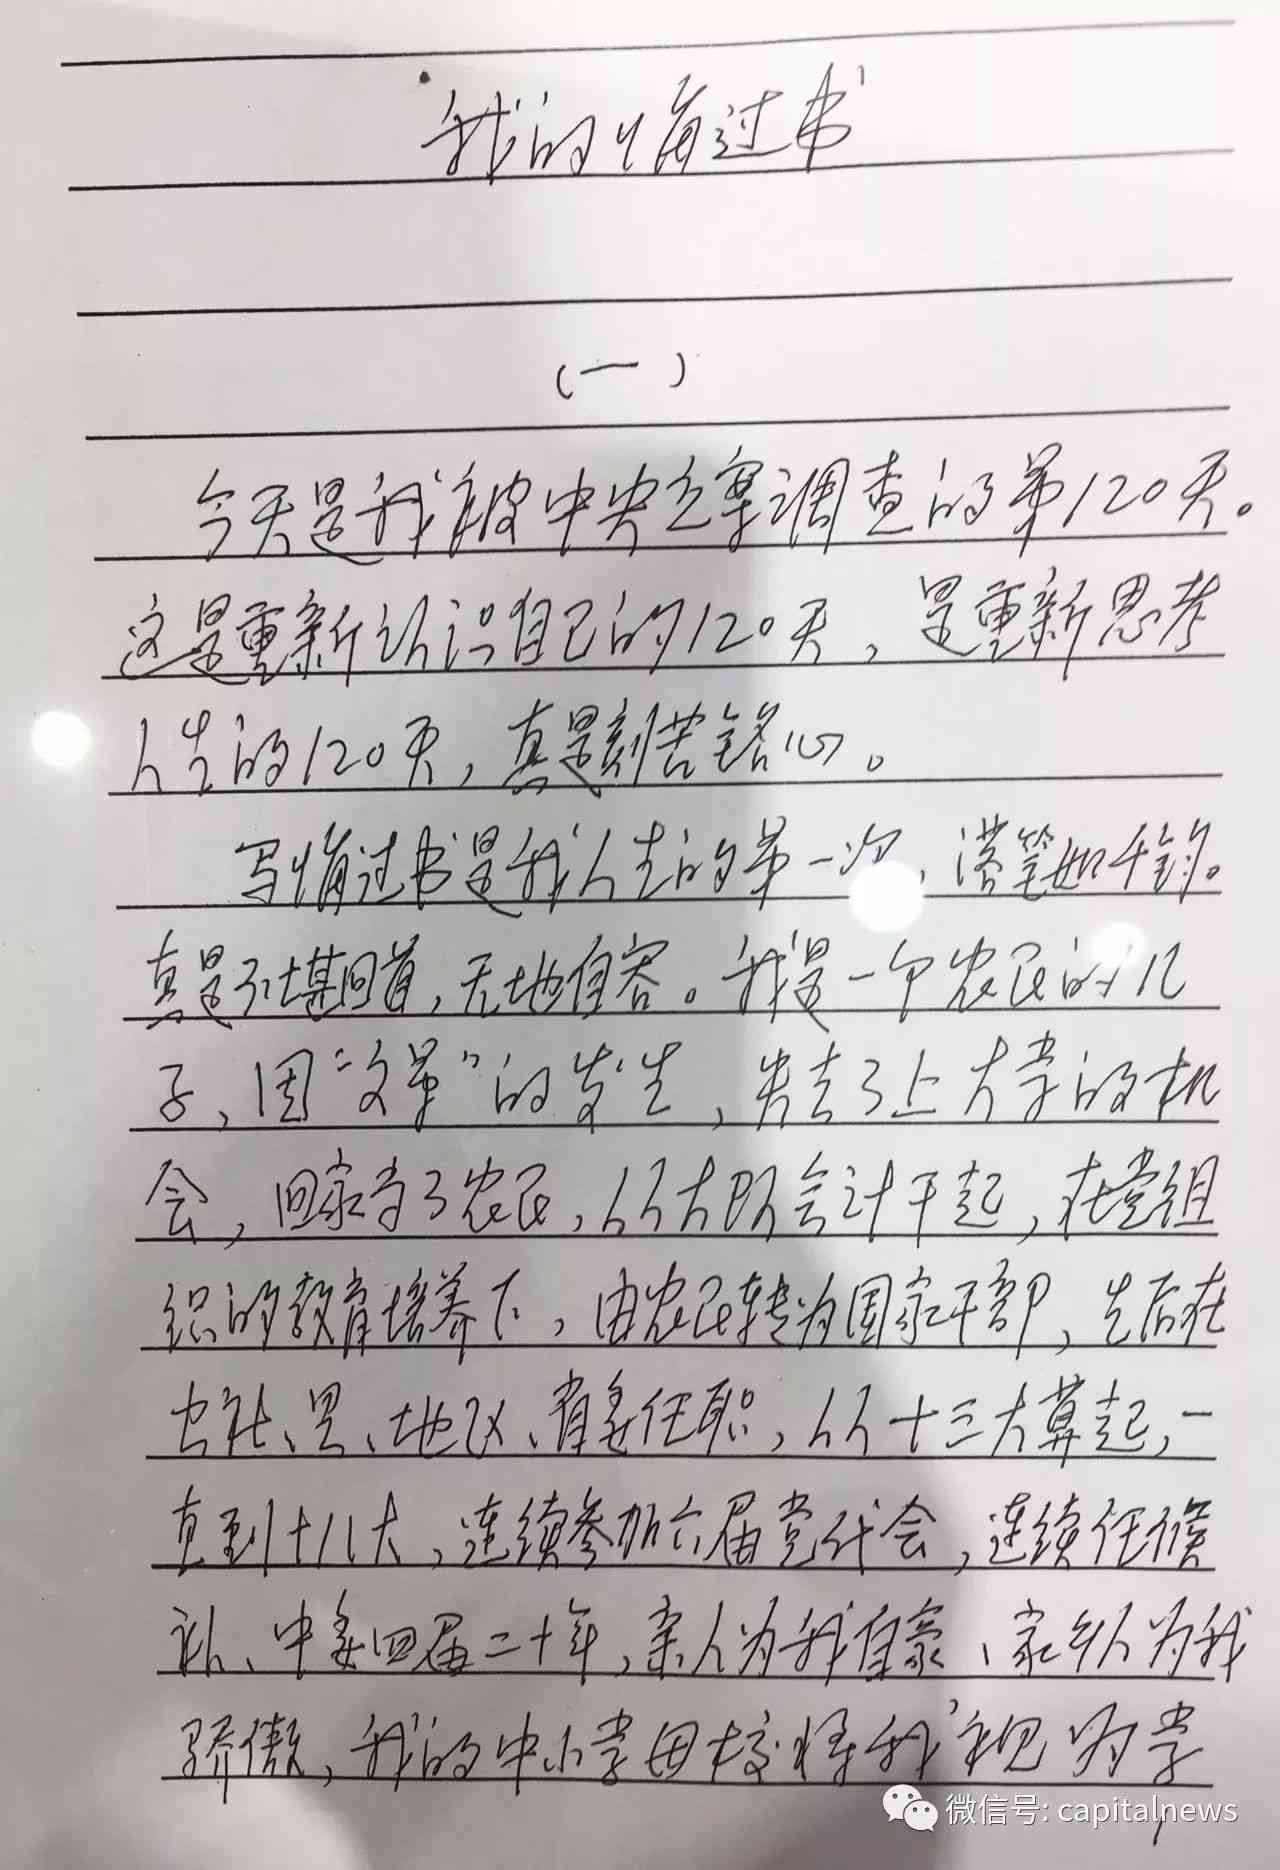 我的悔过书
(一)
今天是我被中央立案调查的第120天。
这是重新认识自己的120天，是重新思考
人生的120天，真是刻苦铭心。
写悔过书是我人生的第一次，落笔如千钧。
真是不堪回首，无地自容。我是一个农民的儿
子，因“文革”的发生，失去了上大学的机
会，回家当了农民，从大队会计干起，在党组
织的教育培养下，由农民转为国家干部，先后在
公社、县、地区、省委任职，从十三大算起，一
直到十八大，连续参加六届党代会，连续任候
补、中委四届二十年，亲人为我自豪、家乡人为我
骄傲，我的中小学母校将我视为学
微信号: capitalnews
1